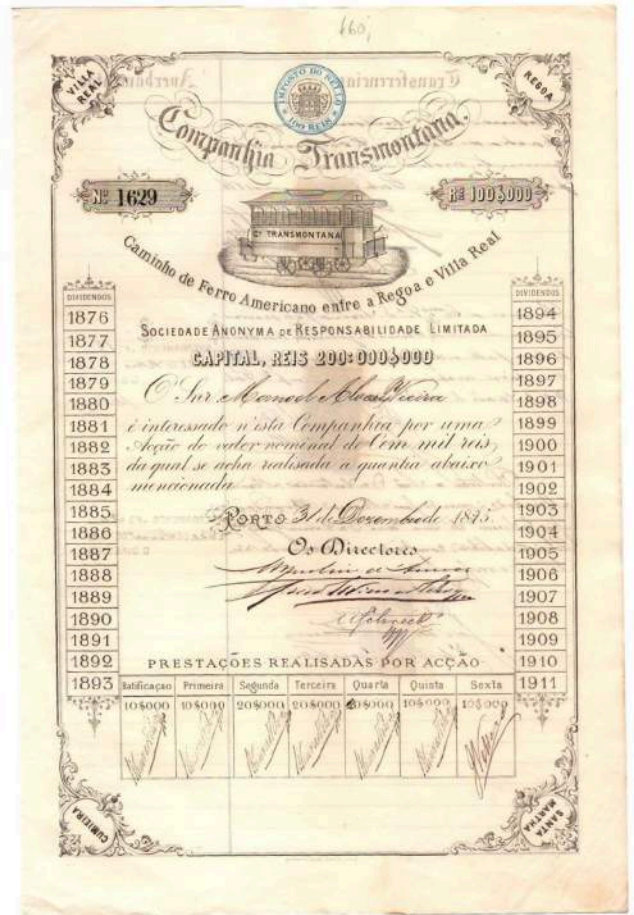 660,
VILLA REAL
REGOA
IMPOSTO DO SELLO
100 REIS
Companhia Transmontana.
Nº 1629
Rs 100$000
Cª TRANSMONTANA
Caminho de Ferro Americano entre a Regoa e Villa Real
SOCIEDADE ANONYMA DE RESPONSABILIDADE LIMITADA
CAPITAL, REIS 200:000$000
O Snr Manoel Alves Vieira
é interessado n'esta Companhia por uma
Acção do valor nominal de Cem mil reis,
da qual se acha realisada a quantia abaixo
mencionada
PORTO 31 de Dezembro de 1875.
Os Directores
DIVIDENDOS
1876
1877
1878
1879
1880
1881
1882
1883
1884
1885
1886
1887
1888
1889
1890
1891
1892
1893
DIVIDENDOS
1894
1895
1896
1897
1898
1899
1900
1901
1902
1903
1904
1905
1906
1907
1908
1909
1910
1911
PRESTAÇÕES REALISADAS POR ACÇÃO
Ratificaçao Primeira Segunda Terceira Quarta Quinta Sexta
10$000 10$000 20$000 20$000 20$000 10$000 10$000
CUMIEIRA
SANTA MARTHA